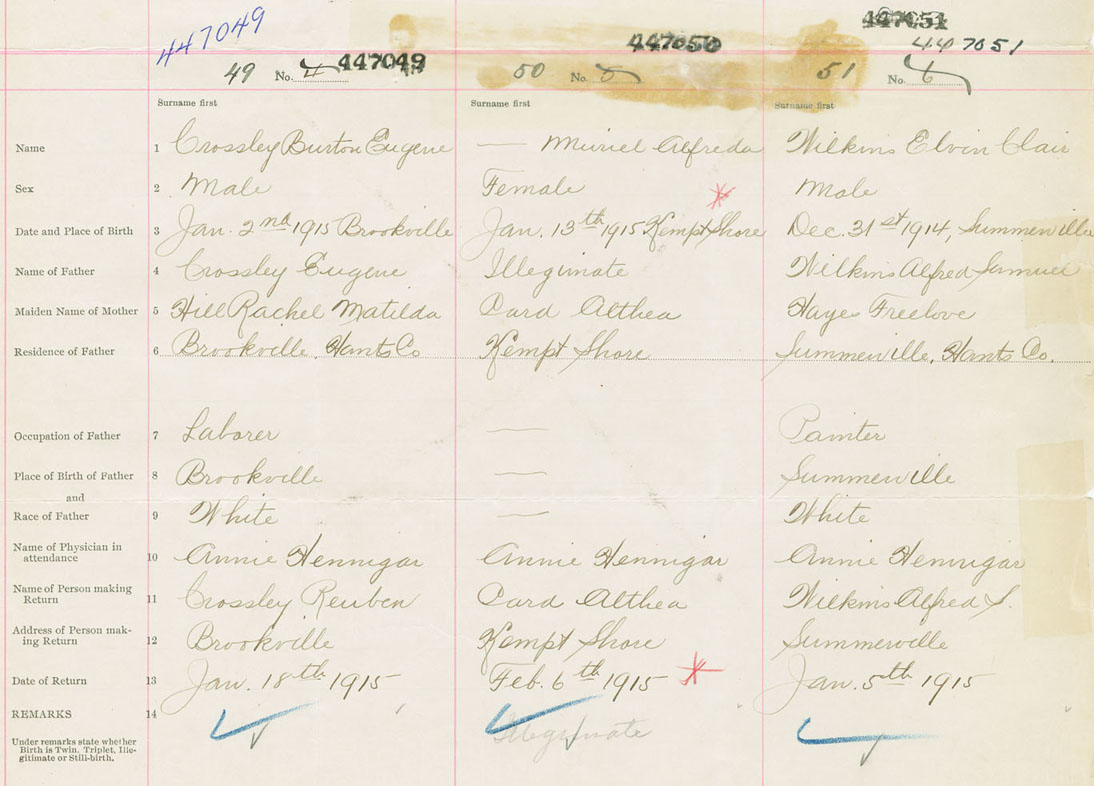 447049 447050 447051
447051
49 No. 4 447049 50 No. 5 51 No. 6
Surname first Surname first Surname first
Name 1 Crossley Burton Eugene — Muriel Alfreda Wilkins Elvin Clair
Sex 2 Male Female Male
Date and Place of Birth 3 Jan. 2nd 1915 Brookville Jan. 13th 1915 Kempt Shore Dec. 31st 1914, Summerville
Name of Father 4 Crossley Eugene Illegimate Wilkins Alfred Samuel
Maiden Name of Mother 5 Hill Rachel Matilda Card Althea Hayes Freelove
Residence of Father 6 Brookville, Hants Co Kempt Shore Summerville, Hants Co.
Occupation of Father 7 Laborer — Painter
Place of Birth of Father 8 Brookville — Summerville
and
Race of Father 9 White — White
Name of Physician in
attendance 10 Annie Hennigar Annie Hennigar Annie Hennigar
Name of Person making
Return 11 Crossley Reuben Card Althea Wilkins Alfred S.
Address of Person mak-
ing Return 12 Brookville Kempt Shore Summerville
Date of Return 13 Jan. 18th 1915 Feb. 6th 1915 Jan. 5th 1915
REMARKS 14
Illegimate
Under remarks state whether
Birth is Twin, Triplet, Ille-
gitimate or Still-birth.